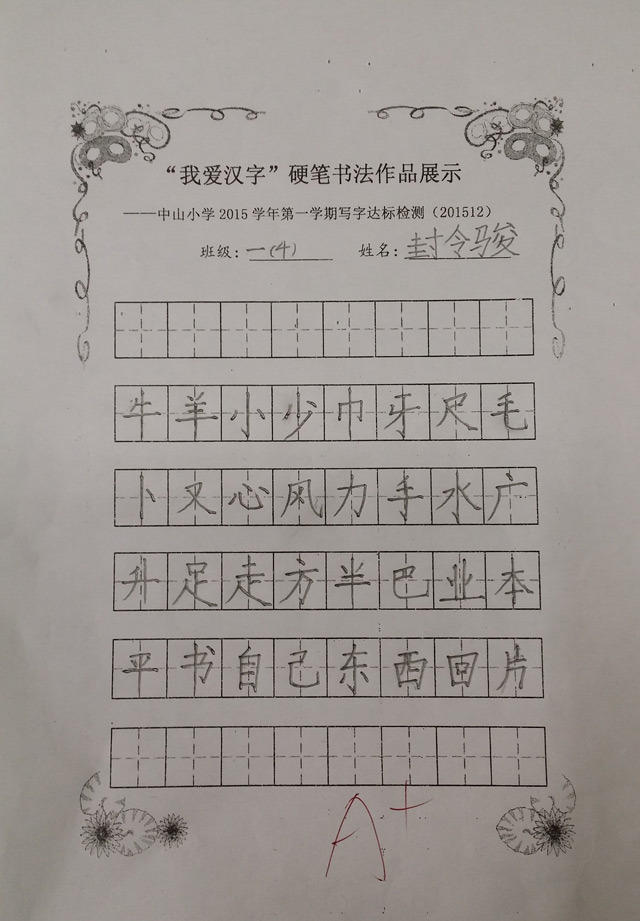 “我爱汉字”硬笔书法作品展示
——中山小学2015学年第一学期写字达标检测（201512）
班级：一(4) 姓名：封令骏
牛羊小少巾牙尺毛
卜叉心风力手水广
升足走方半巴业本
平书自己东西回片
A+